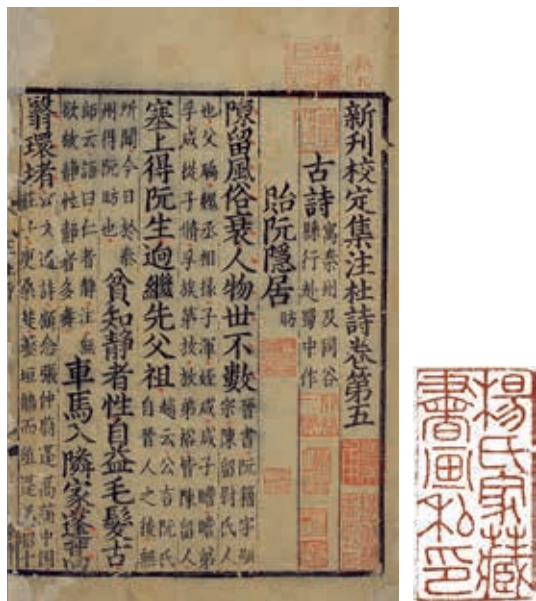 新刊校定集注杜詩卷第五
古詩
寓秦州及同谷
縣行赴蜀中作
貽阮隱居
昉
陳留風俗衰人物世不數
晉書阮籍字嗣
宗陳留尉氏人
也父瑀魏丞相掾子渾姪咸咸子瞻瞻弟
孚咸從子脩孚族弟放放弟裕皆陳留人
塞上得阮生迥繼先父祖
趙云公言阮氏
自晉人之後無
所聞今日於秦
州得阮昉也
貧知靜者性自益毛髮古
師云語曰仁者靜注無
欲故靜性靜者多壽
車馬入隣家蓬蒿
翳環堵
楊氏家藏
書画私印